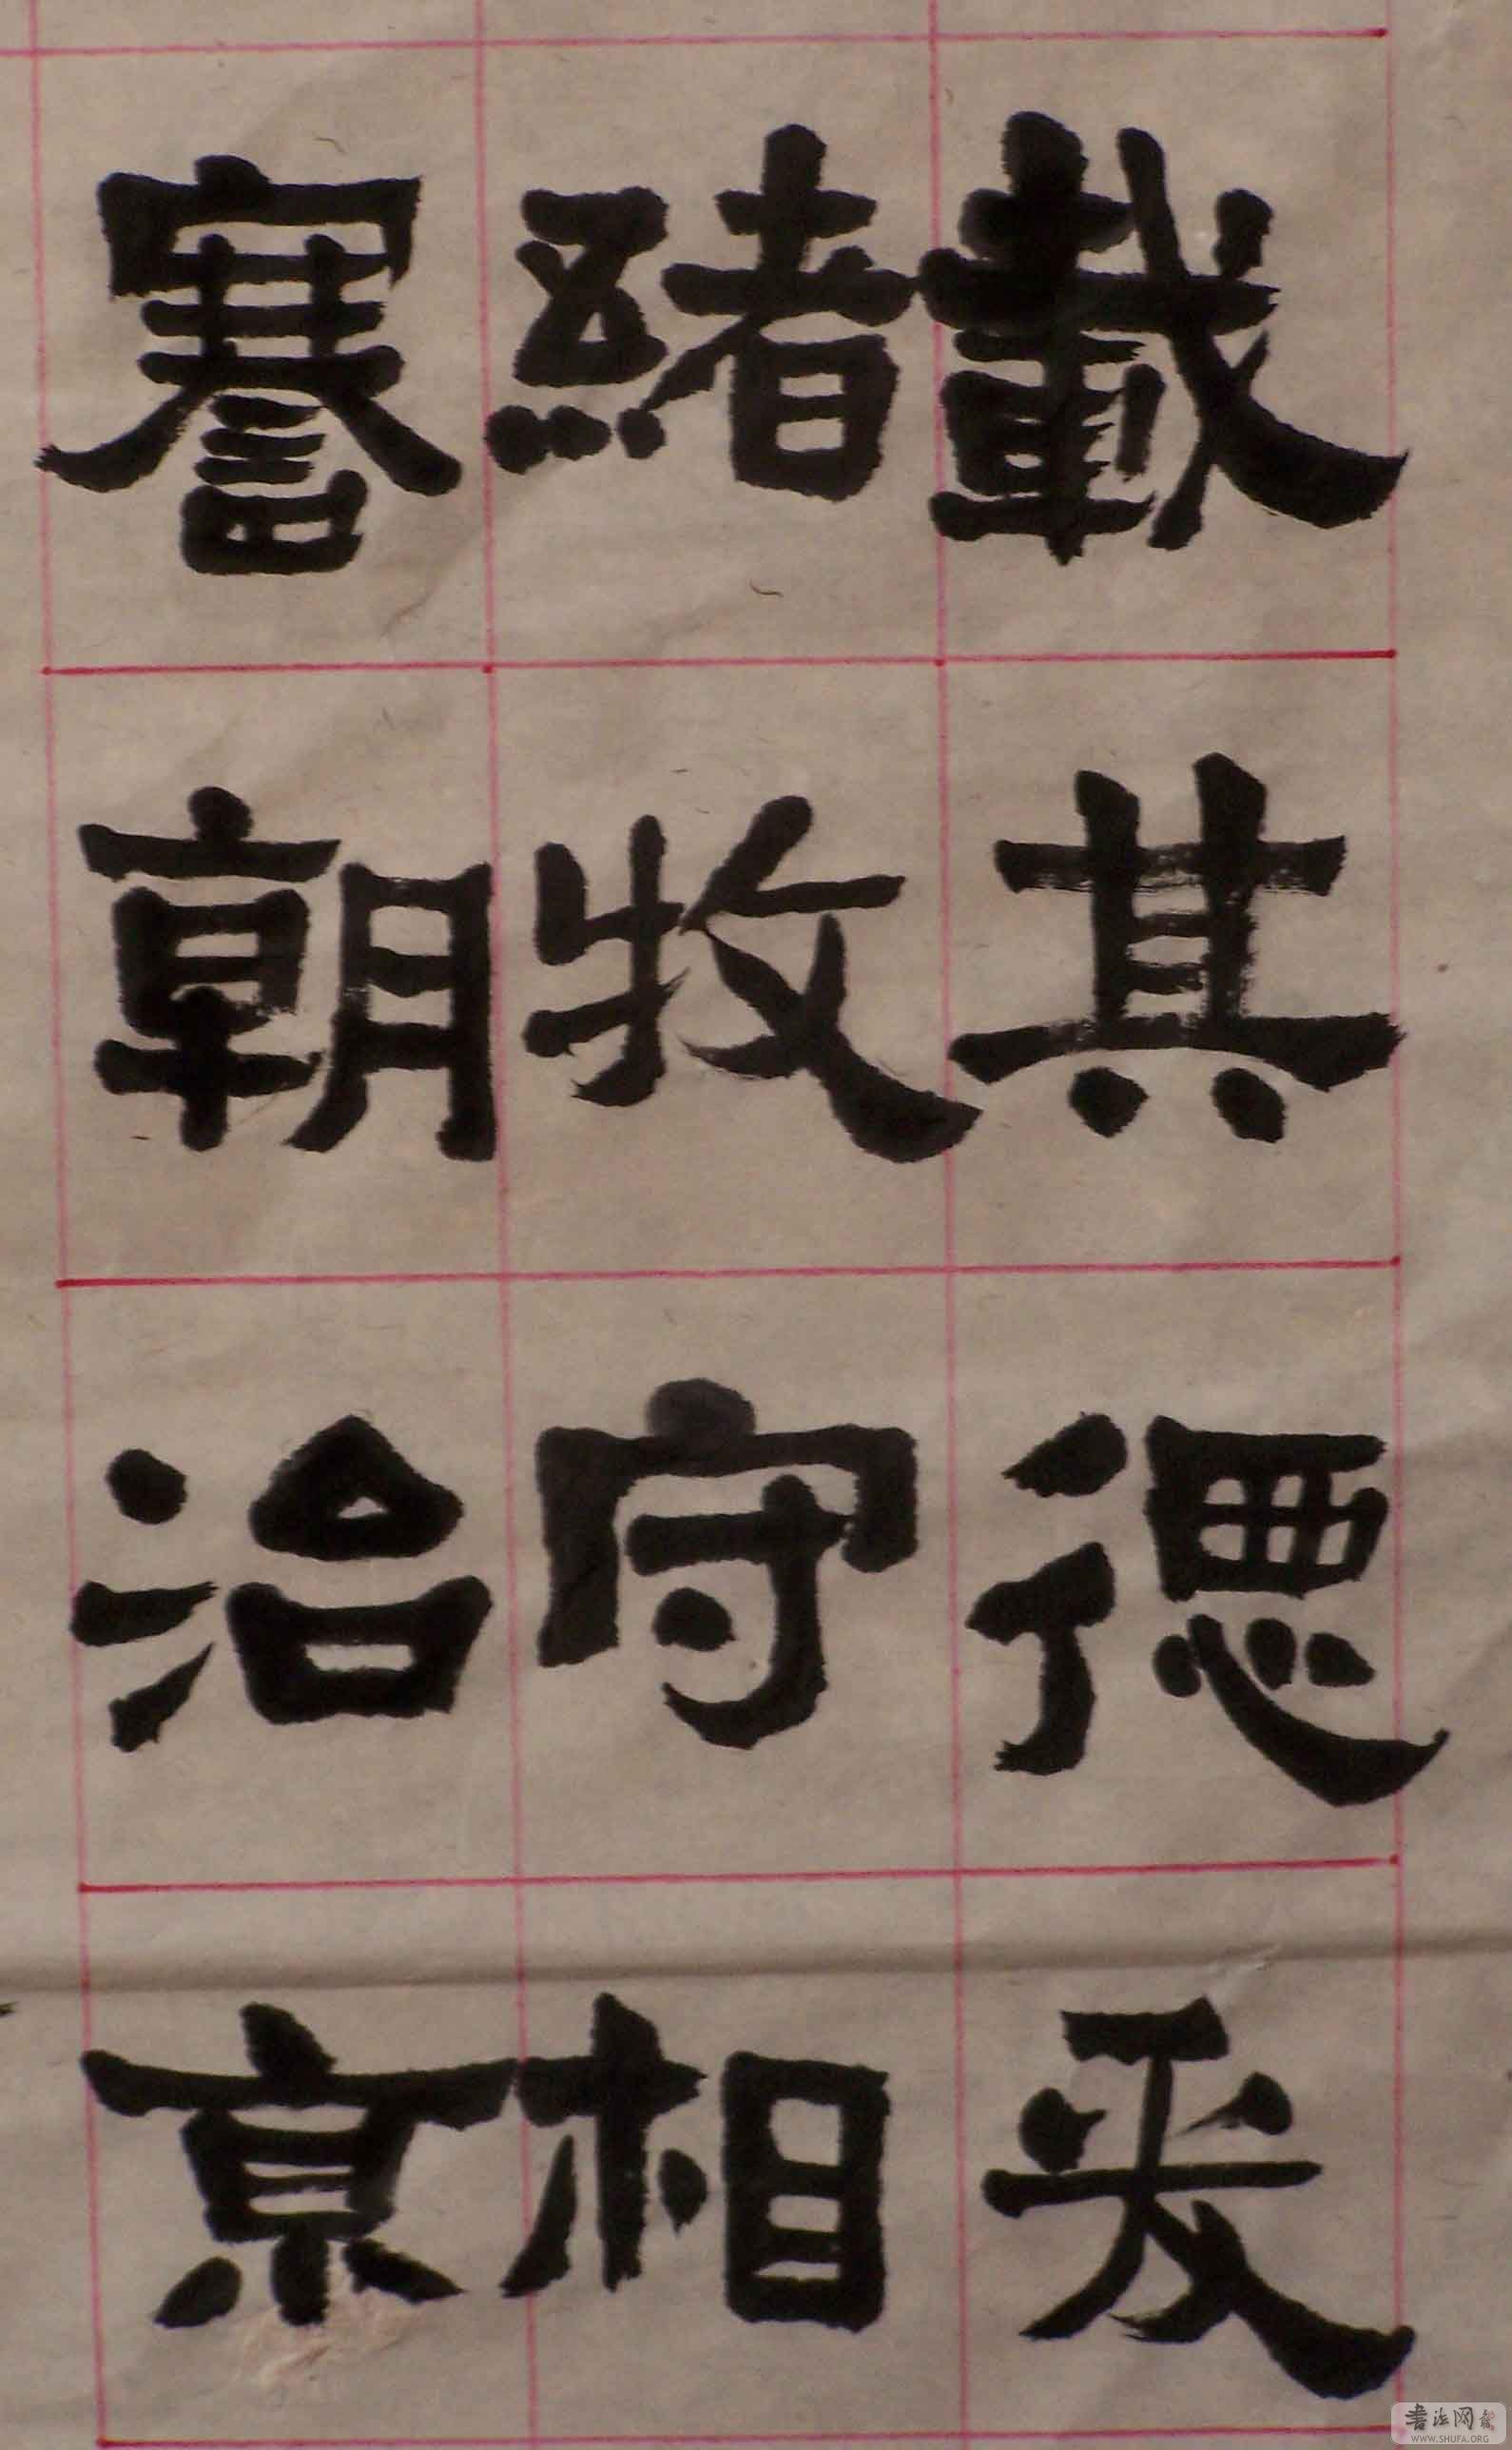 載其德爰
緒牧守相
謇朝治京
书法网
WWW.SHUFA.ORG